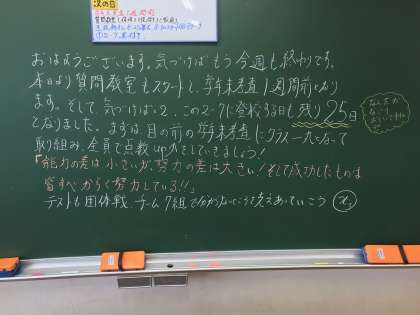 次の日
おはようございます。気づけばもう今週も終わりです。
本日より質問教室もスタートし、学年末考査1週間前となり
ます。そして気づけば2、この2-7に登校する日も残り25日
となりました。まずは目の前の学年末考査にクラス一丸となって
取り組み、全員で点数upをしていきましょう!
「能力の差は小さいが、努力の差は大きい!そして成功したものは
皆すべからく努力している!!」
テストも団体戦 チーム7組で 支えあっていこう